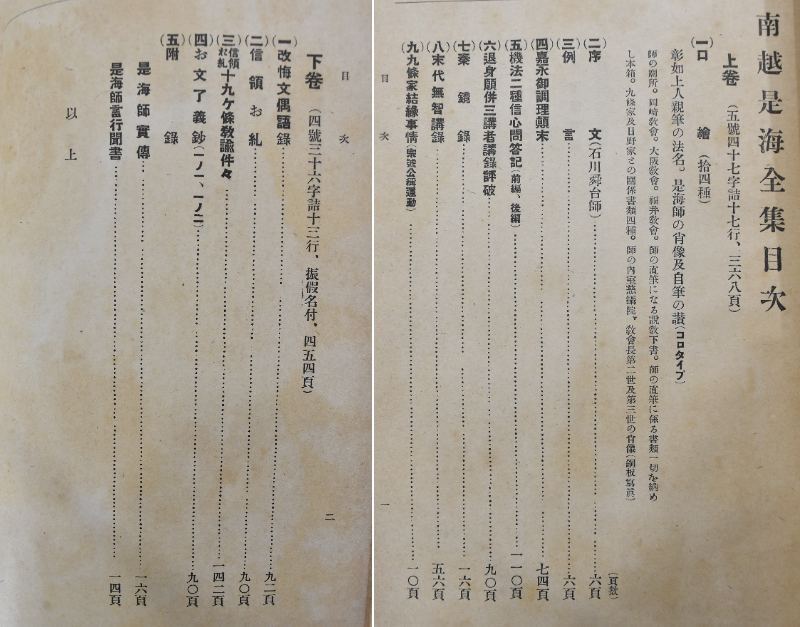 南越是海全集目次
上卷 （五號四十七字詰十七行、三六八頁）
（一）口繪 （拾四種）
彰如上人親筆の法名。是海師の肖像及自筆の讃（コロタイプ）
師の廟所。岡崎敎會。大阪敎會。福井敎會。師の直筆になる說敎下書。師の直筆に係る書類一切を納め
し本箱。九條家及日野家との關係書類四種。師の內室慈鏡院、敎會長第二世及第三世の肖像（銅板寫眞）
（頁數）
（二）序文（石川舜台師）……六頁
（三）例言……六頁
（四）嘉永御調理顚末……七四頁
（五）機法二種信心問答記（前編、後編）……一一〇頁
（六）退身願併三講者講錄評破……九〇頁
（七）秦鏡錄……一六頁
（八）末代無智講錄……五六頁
（九）九條家結緣事情……一〇頁
目次
一
目次
二
下卷 （四號三十六字詰十三行、振假名付、四五四頁）
（一）改悔文偶語錄……九二頁
（二）信領お糺……九〇頁
（三）信領お糺十九ケ條敎諭件々……一四二頁
（四）お文了義鈔（一ノ一、一ノ二）……九〇頁
（五）附錄
是海師實傳……一六頁
是海師言行聞書……一四頁
以上